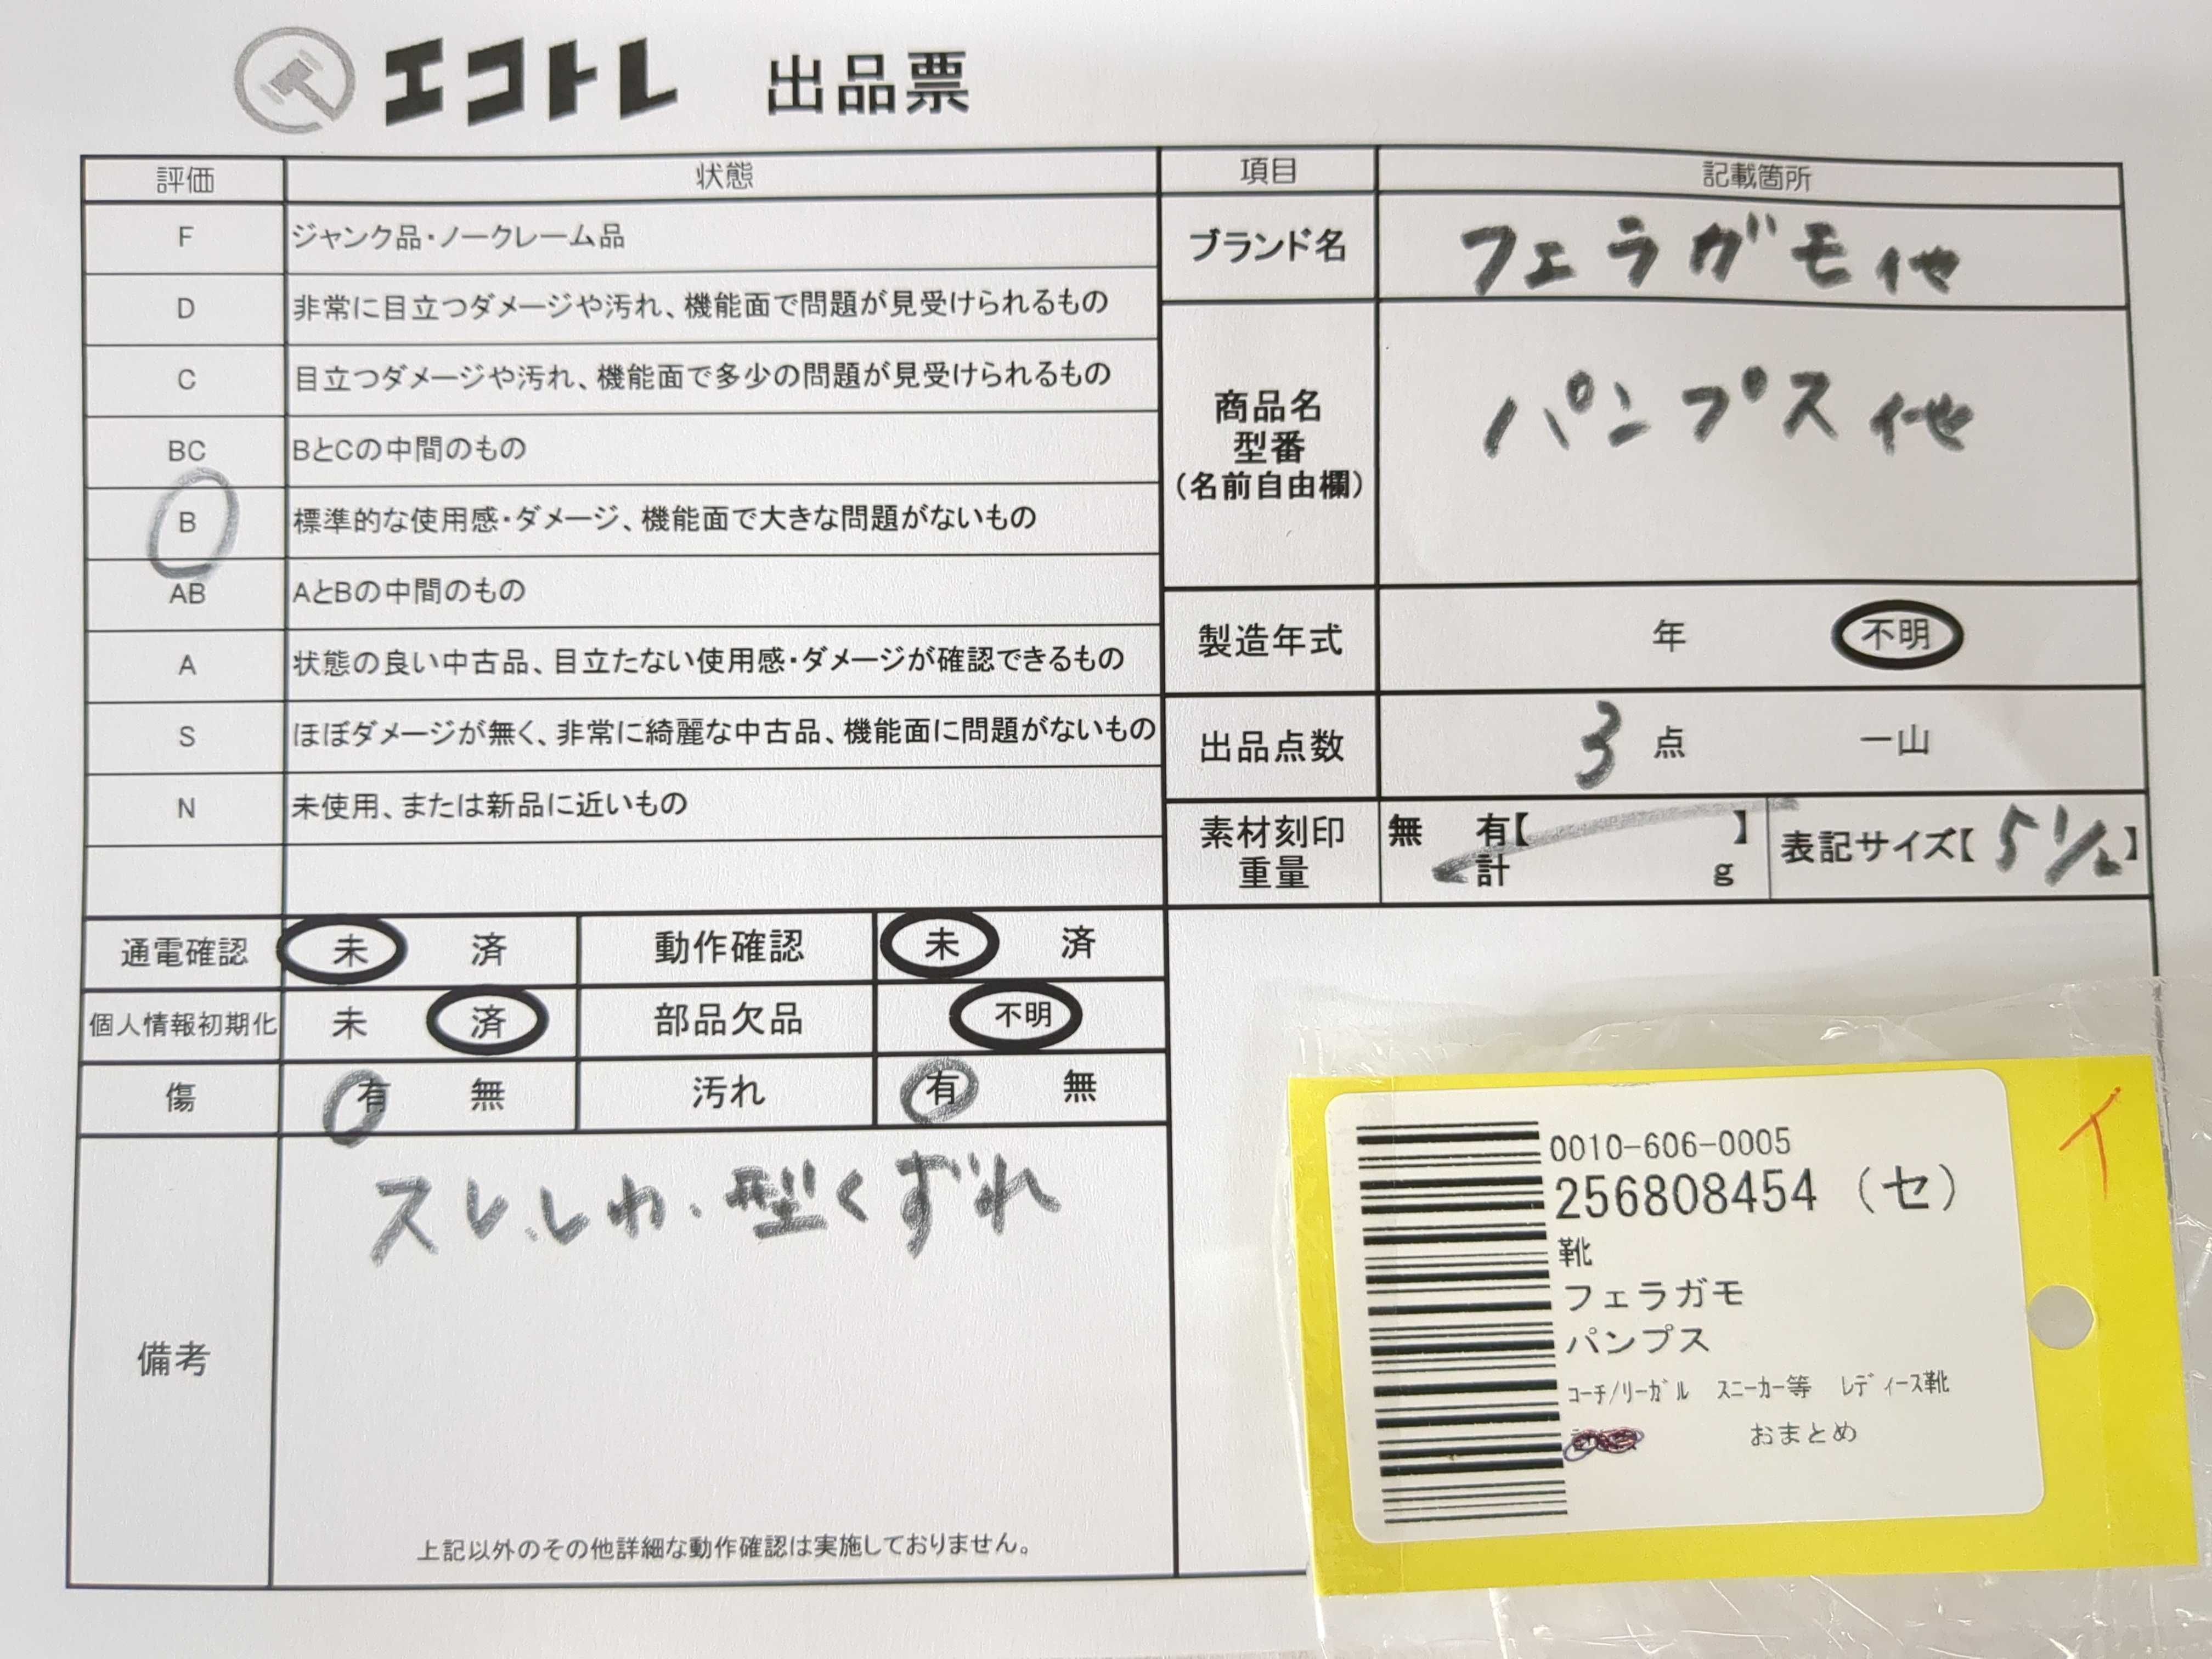 エコトレ 出品票
評価 状態 項目 記載箇所
F ジャンク品・ノークレーム品
D 非常に目立つダメージや汚れ、機能面で問題が見受けられるもの
C 目立つダメージや汚れ、機能面で多少の問題が見受けられるもの
BC BとCの中間のもの
B 標準的な使用感・ダメージ、機能面で大きな問題がないもの
AB AとBの中間のもの
A 状態の良い中古品、目立たない使用感・ダメージが確認できるもの
S ほぼダメージが無く、非常に綺麗な中古品、機能面に問題がないもの
N 未使用、または新品に近いもの
ブランド名 フェラガモ他
商品名
型番
(名前自由欄)
パンプス他
製造年式 年 不明
出品点数 3 点 一山
素材刻印 無 有【 】
重量 計 g
表記サイズ【5 1/2】
通電確認 未 済 動作確認 未 済
個人情報初期化 未 済 部品欠品 不明
傷 有 無 汚れ 有 無
備考
スレ、しわ、型くずれ
上記以外のその他詳細な動作確認は実施しておりません。
0010-606-0005
256808454 (セ)
靴
フェラガモ
パンプス
コーチ/リーガル スニーカー等 レディース靴
おまとめ
イ